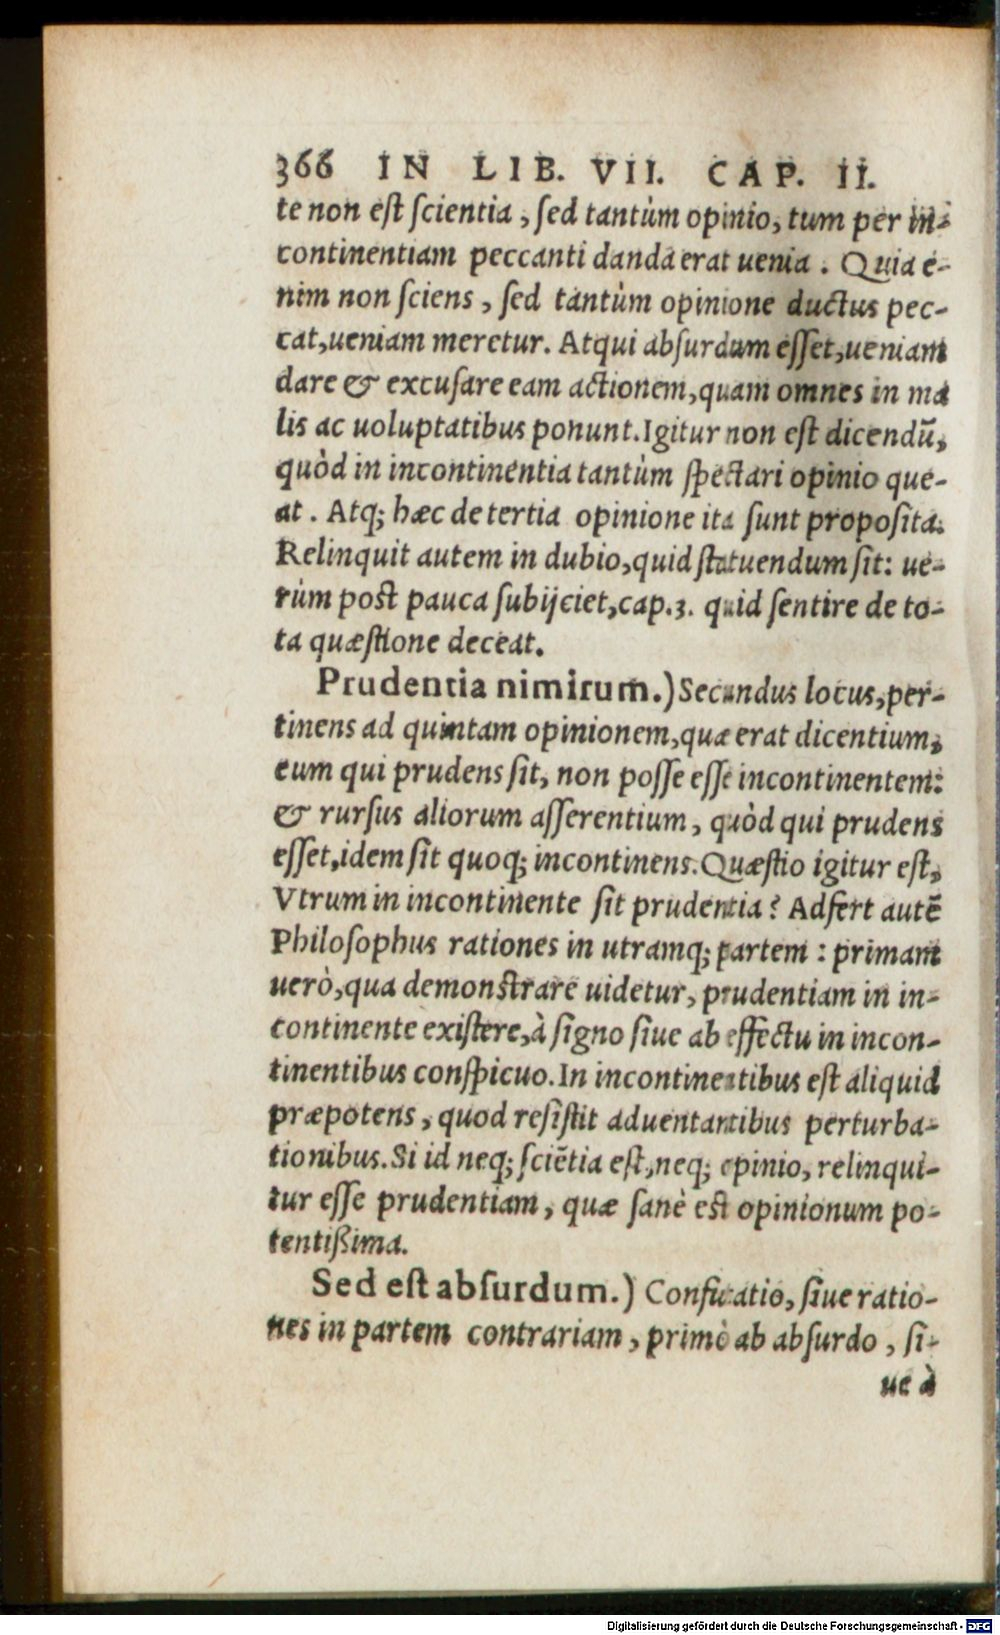 366 IN LIB. VII. CAP. II.
te non eſt ſcientia, ſed tantùm opinio, tum per in-
continentiam peccanti danda erat uenia. Quia e-
nim non ſciens, ſed tantùm opinione ductus pec-
cat, ueniam meretur. Atqui abſurdum eſſet, ueniam
dare & excuſare eam actionem, quam omnes in ma
lis ac uoluptatibus ponunt. Igitur non eſt dicendũ,
quòd in incontinentia tantùm ſpectari opinio que-
at. Atq; hæc de tertia opinione ita ſunt propoſita.
Relinquit autem in dubio, quid ſtatuendum ſit: ue-
rùm poſt pauca ſubijciet, cap. 3. quid ſentire de to-
ta quæſtione deceat.
Prudentia nimirum.) Secundus locus, per-
tinens ad quintam opinionem, quæ erat dicentium,
eum qui prudens ſit, non poſſe eſſe incontinentem:
& rurſus aliorum aſſerentium, quòd qui prudens
eſſet, idem ſit quoq; incontinens. Quæſtio igitur eſt,
Vtrum in incontinente ſit prudentia? Adfert autẽ
Philoſophus rationes in utramq; partem: primam
uerò, qua demonſtrare uidetur, prudentiam in in-
continente exiſtere, à ſigno ſiue ab effectu in incon-
tinentibus conſpicuo. In incontinentibus eſt aliquid
præpotens, quod reſiſtit aduentantibus perturba-
tionibus. Si id neq; ſciẽtia eſt, neq; opinio, relinqui-
tur eſſe prudentiam, quæ ſanè eſt opinionum po-
tentißima.
Sed eſt abſurdum.) Confutatio, ſiue ratio-
nes in partem contrariam, primò ab abſurdo, ſi-
ue à
Digitalisierung gefördert durch die Deutsche Forschungsgemeinschaft - DFG